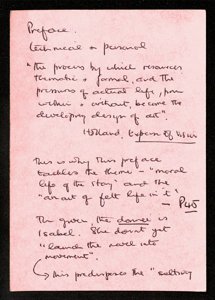 Preface.
technical & personal
"the process by which resources
thematic & formal, and the
pressures of actual life, from
within & without, become the
developing design of art".
Holland, Expense of Vision
This is why this preface
tackles the theme – "moral
life of the story" and the
"amount of felt life in it"
– P45
The given the donnée is
Isabel. She don't get
"launch the novel into
movement".
↳ this predisposes the "sultry